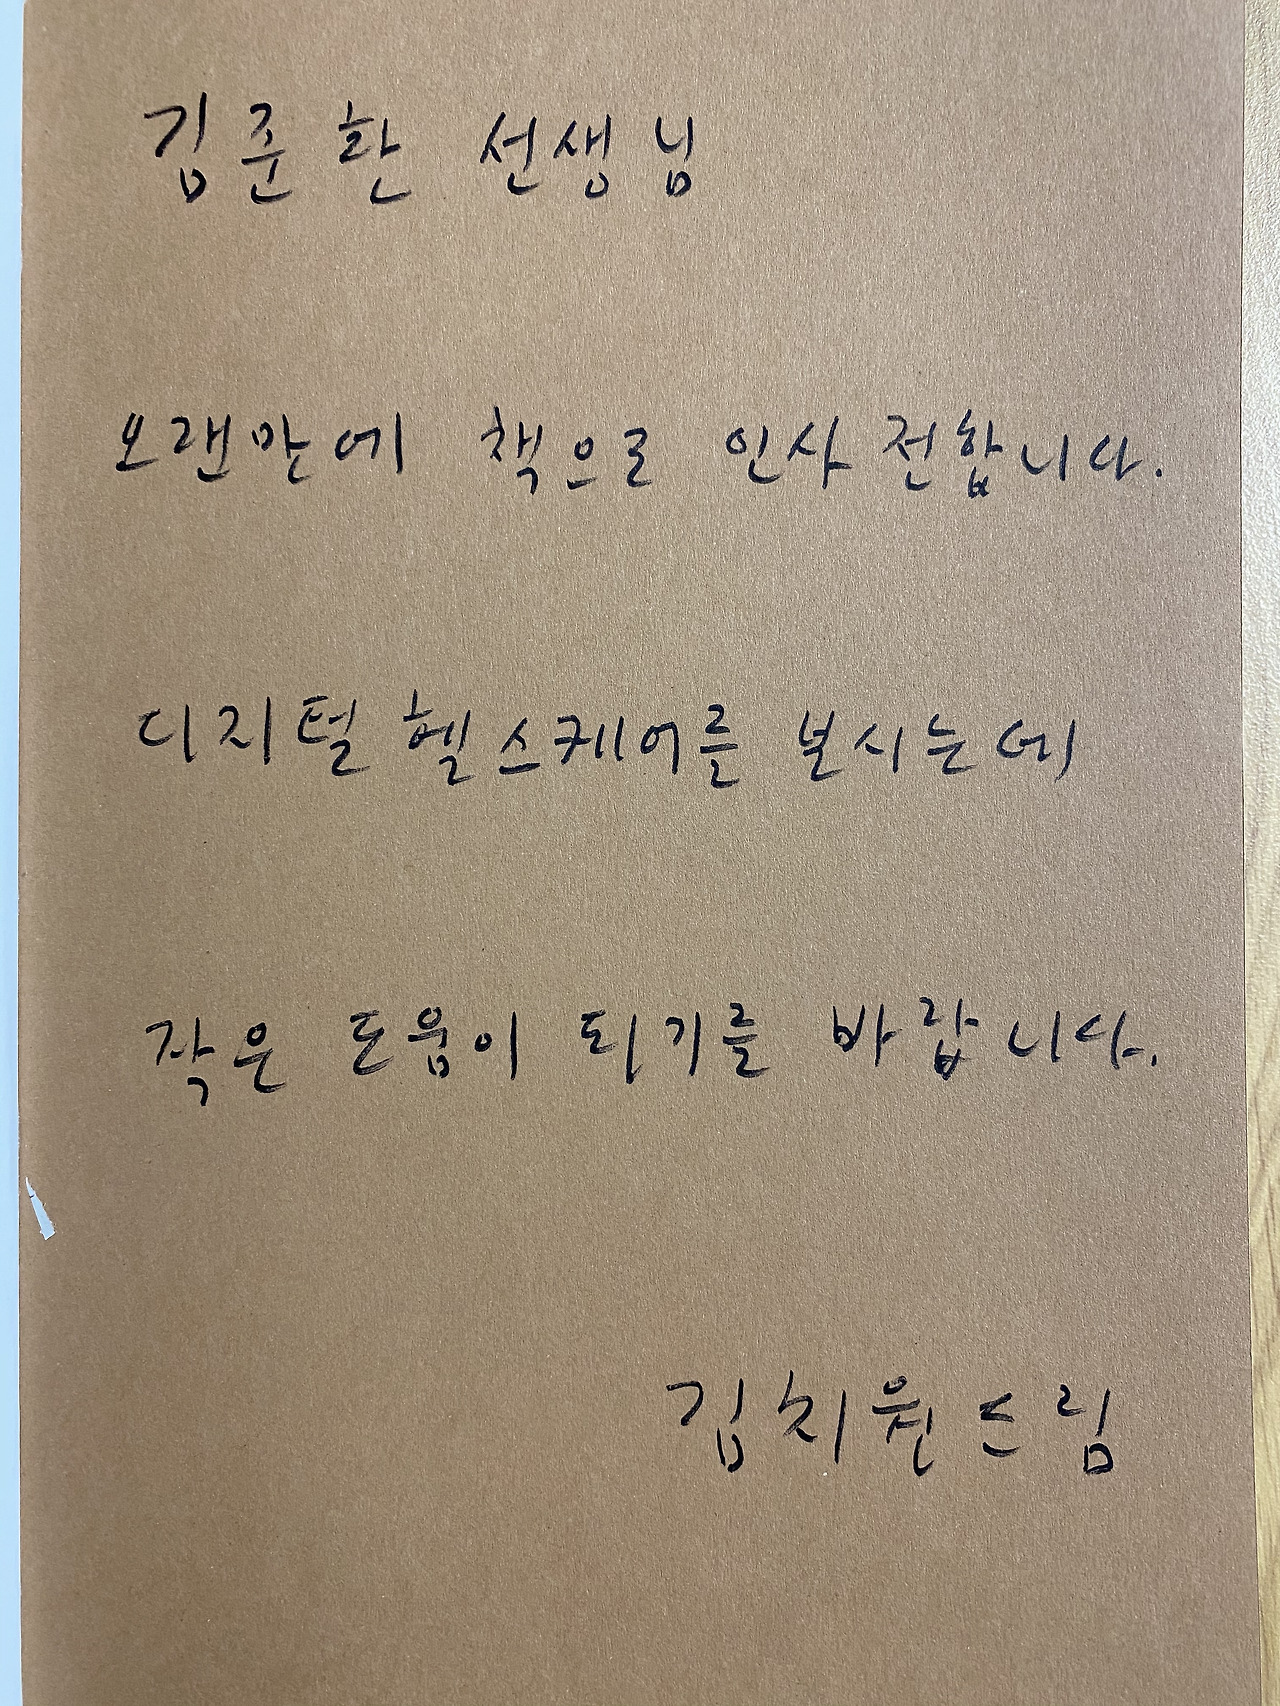 김준환 선생님
오랜만에 책으로 인사 전합니다.
디지털 헬스케어를 보시는데
작은 도움이 되기를 바랍니다.
김치원 드림